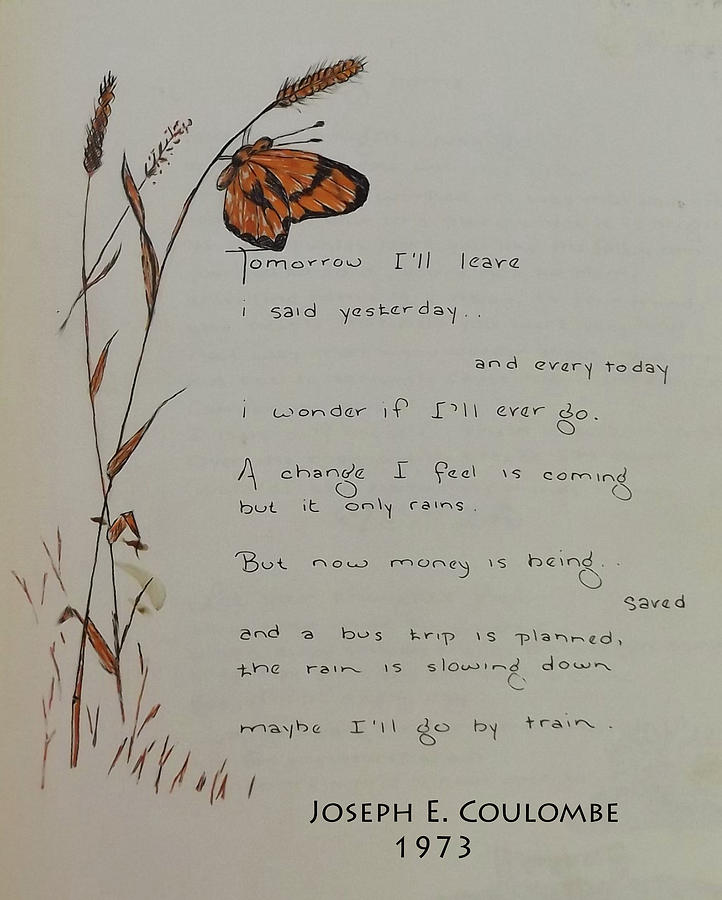 Tomorrow I'll leave
i said yesterday..
and every today
i wonder if I'll ever go.
A change I feel is coming
but it only rains.
But now money is being..
saved
and a bus trip is planned,
the rain is slowing down
maybe I'll go by train.
JOSEPH E. COULOMBE
1973